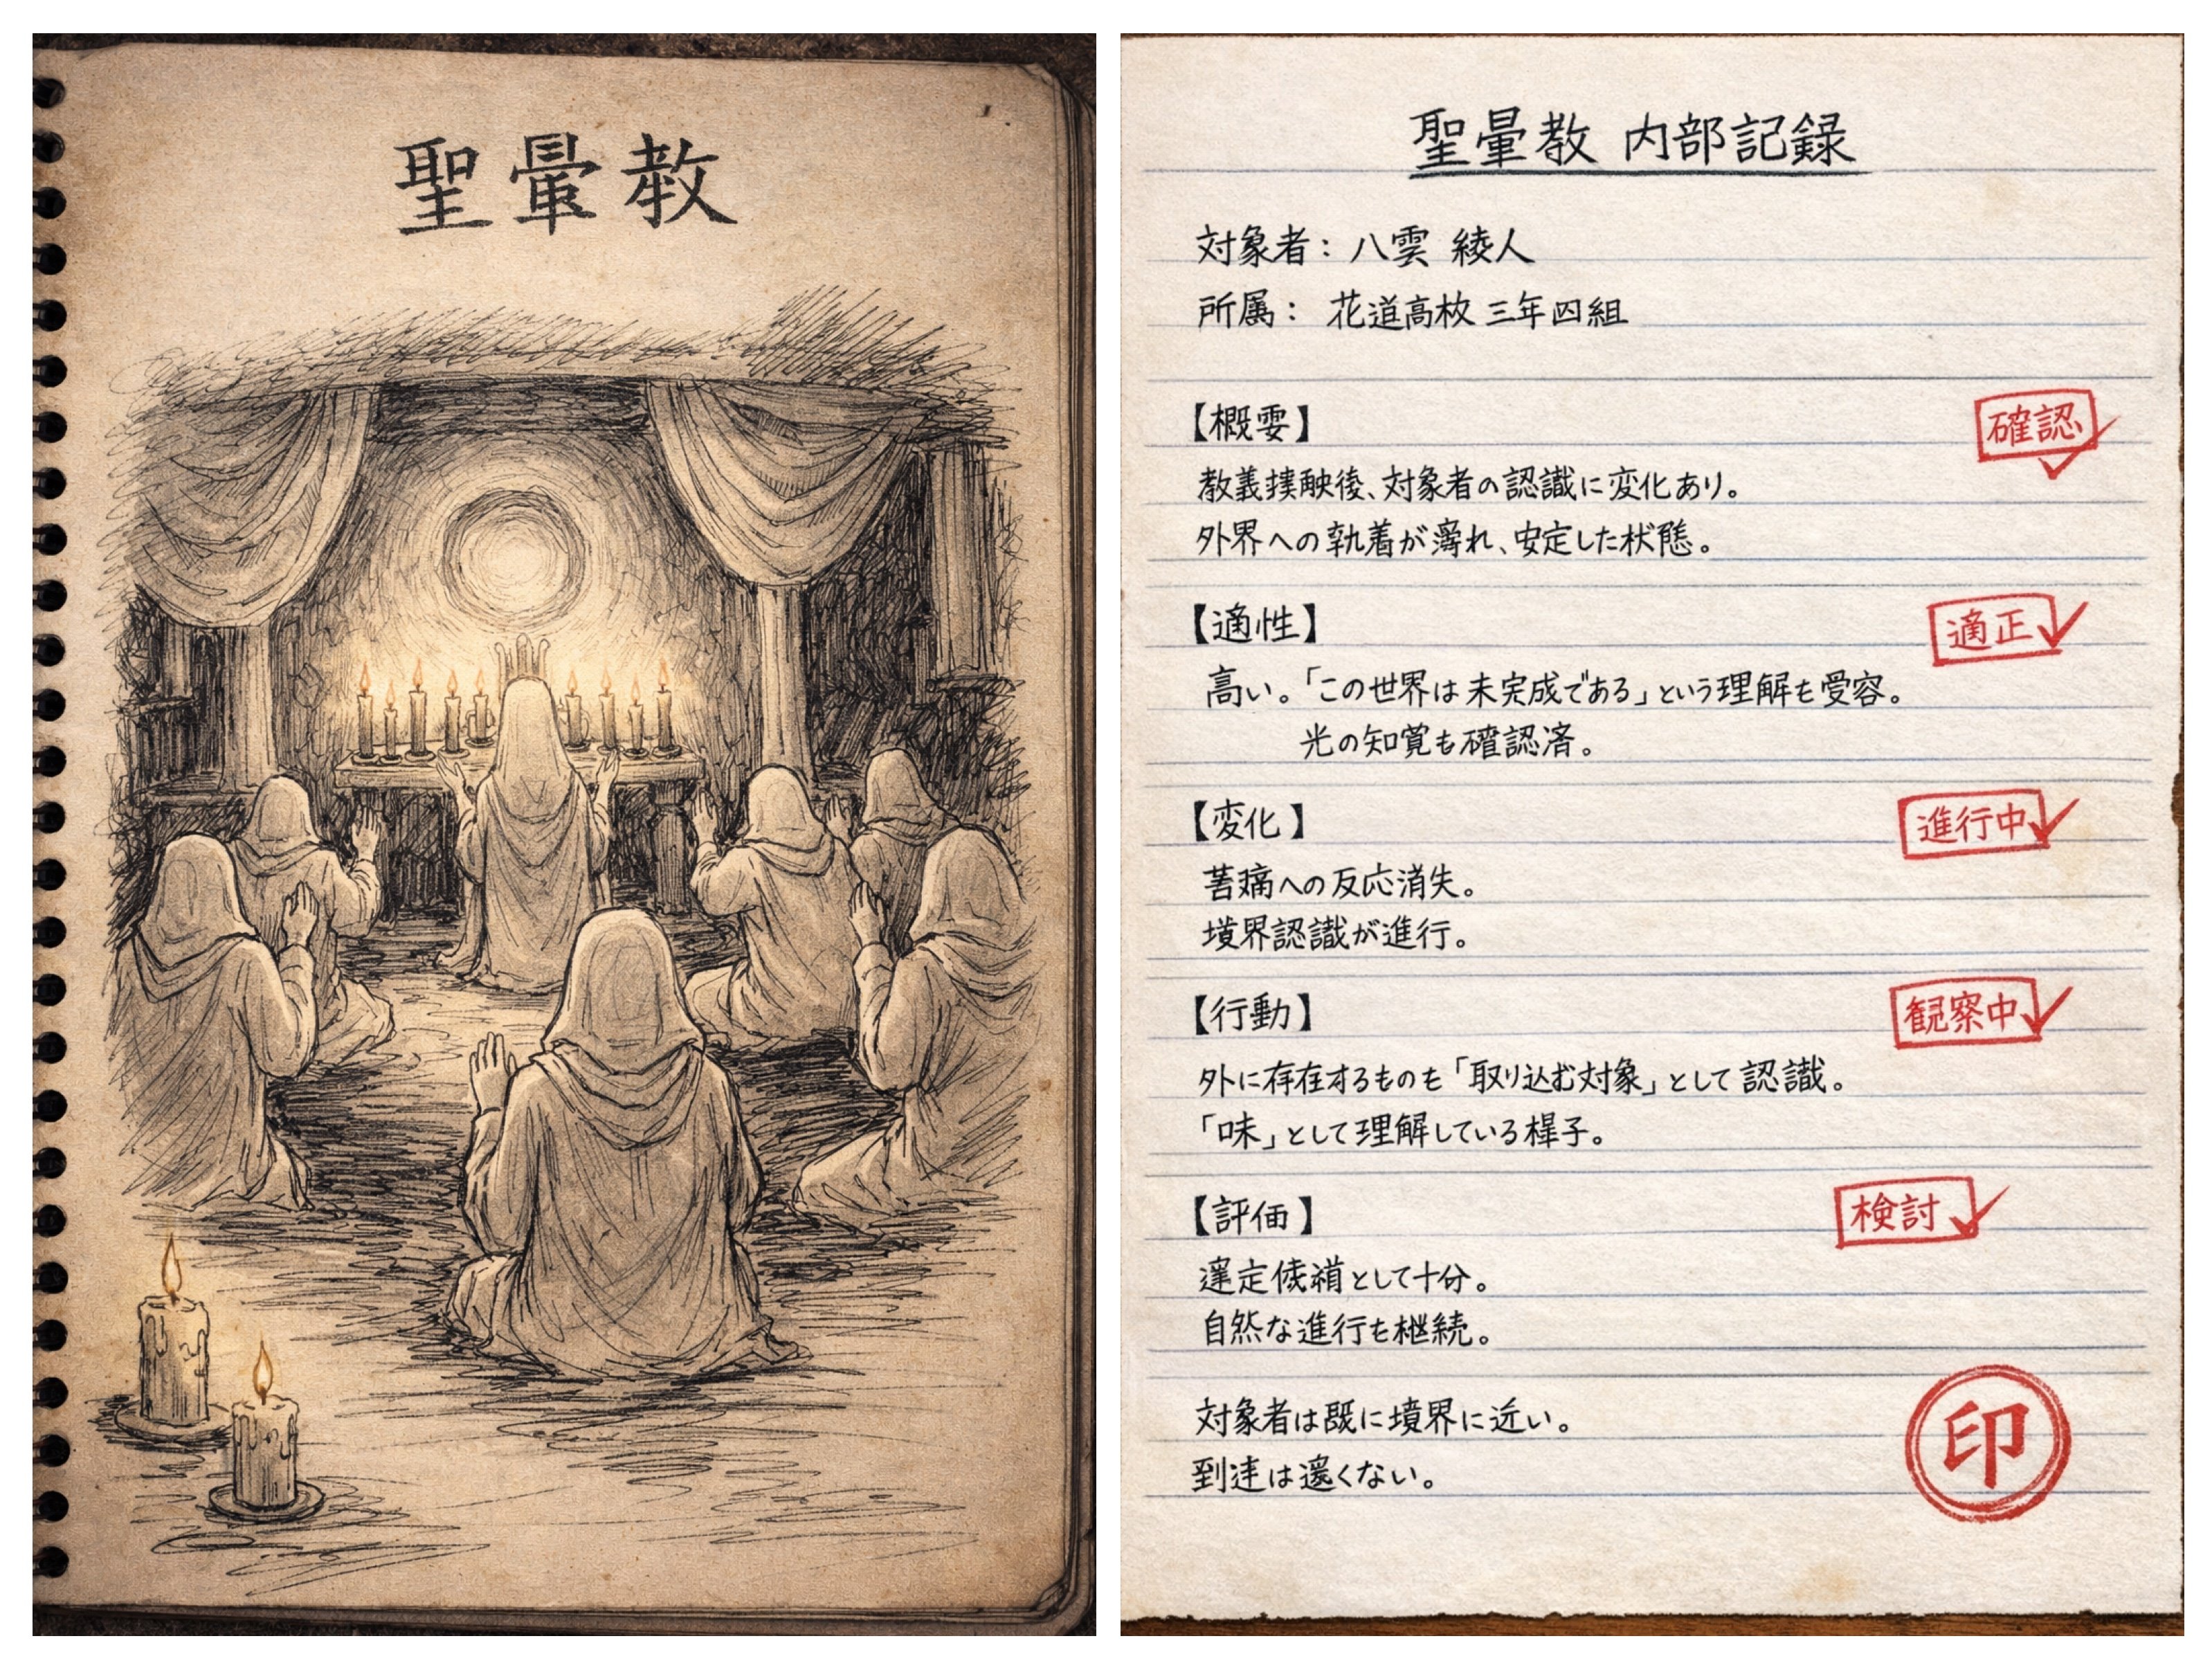 聖暈教
聖暈教 内部記録
対象者：八雲 綾人
所属：花道高校 三年四組
【概要】
確認
教義接触後、対象者の認識に変化あり。
外界への執着が薄れ、安定した状態。
【適性】
適正
高い。「この世界は未完成である」という理解も受容。
光の知覚も確認済。
【変化】
進行中
苦痛への反応消失。
境界認識が進行。
【行動】
観察中
外に存在するものも「取り込む対象」として認識。
「味」として理解している様子。
【評価】
検討
選定候補として十分。
自然な進行も継続。
対象者は既に境界に近い。
到達は遠くない。
印